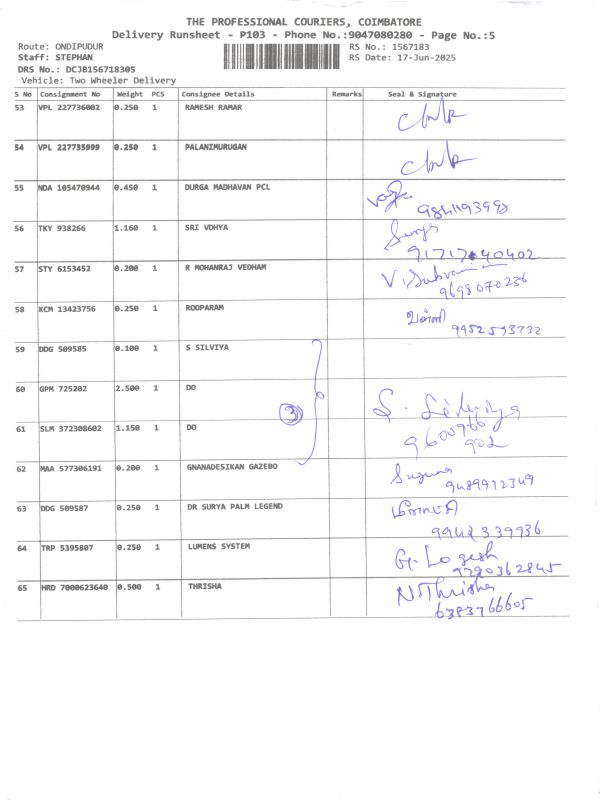 THE PROFESSIONAL COURIERS, COIMBATORE
Delivery Runsheet - P103 - Phone No.:9047080280 - Page No.:5
Route: ONDIPUDUR RS No.: 1567183
Staff: STEPHAN RS Date: 17-Jun-2025
DRS No.: DCJB156718305
Vehicle: Two Wheeler Delivery
S No Consignment No Weight PCS Consignee Details Remarks Seal & Signature
53 VPL 227736002 0.250 1 RAMESH RAMAR
54 VPL 227735999 0.250 1 PALANIMURUGAN
55 NDA 105470944 0.450 1 DURGA MADHAVAN PCL
56 TKY 938266 1.160 1 SRI VDHYA Surya
57 STY 6153452 0.200 1 R MOHANRAJ VEDHAM
9698070236
58 KCM 13423756 0.250 1 ROOPARAM
9952593732
59 DDG 509585 0.100 1 S SILVIYA
60 GPM 725202 2.500 1 DO
3
61 SLM 372308602 1.150 1 DO
9600966
902
62 MAA 577306191 0.200 1 GNANADESIKAN GAZEBO Suguna
9489912349
63 DDG 509587 0.250 1 DR SURYA PALM LEGEND
9942339936
64 TRP 5395807 0.250 1 LUMENS SYSTEM G. Logesh
9790362845
65 HRD 7000623640 0.500 1 THRISHA N.Thrisha
6383766605